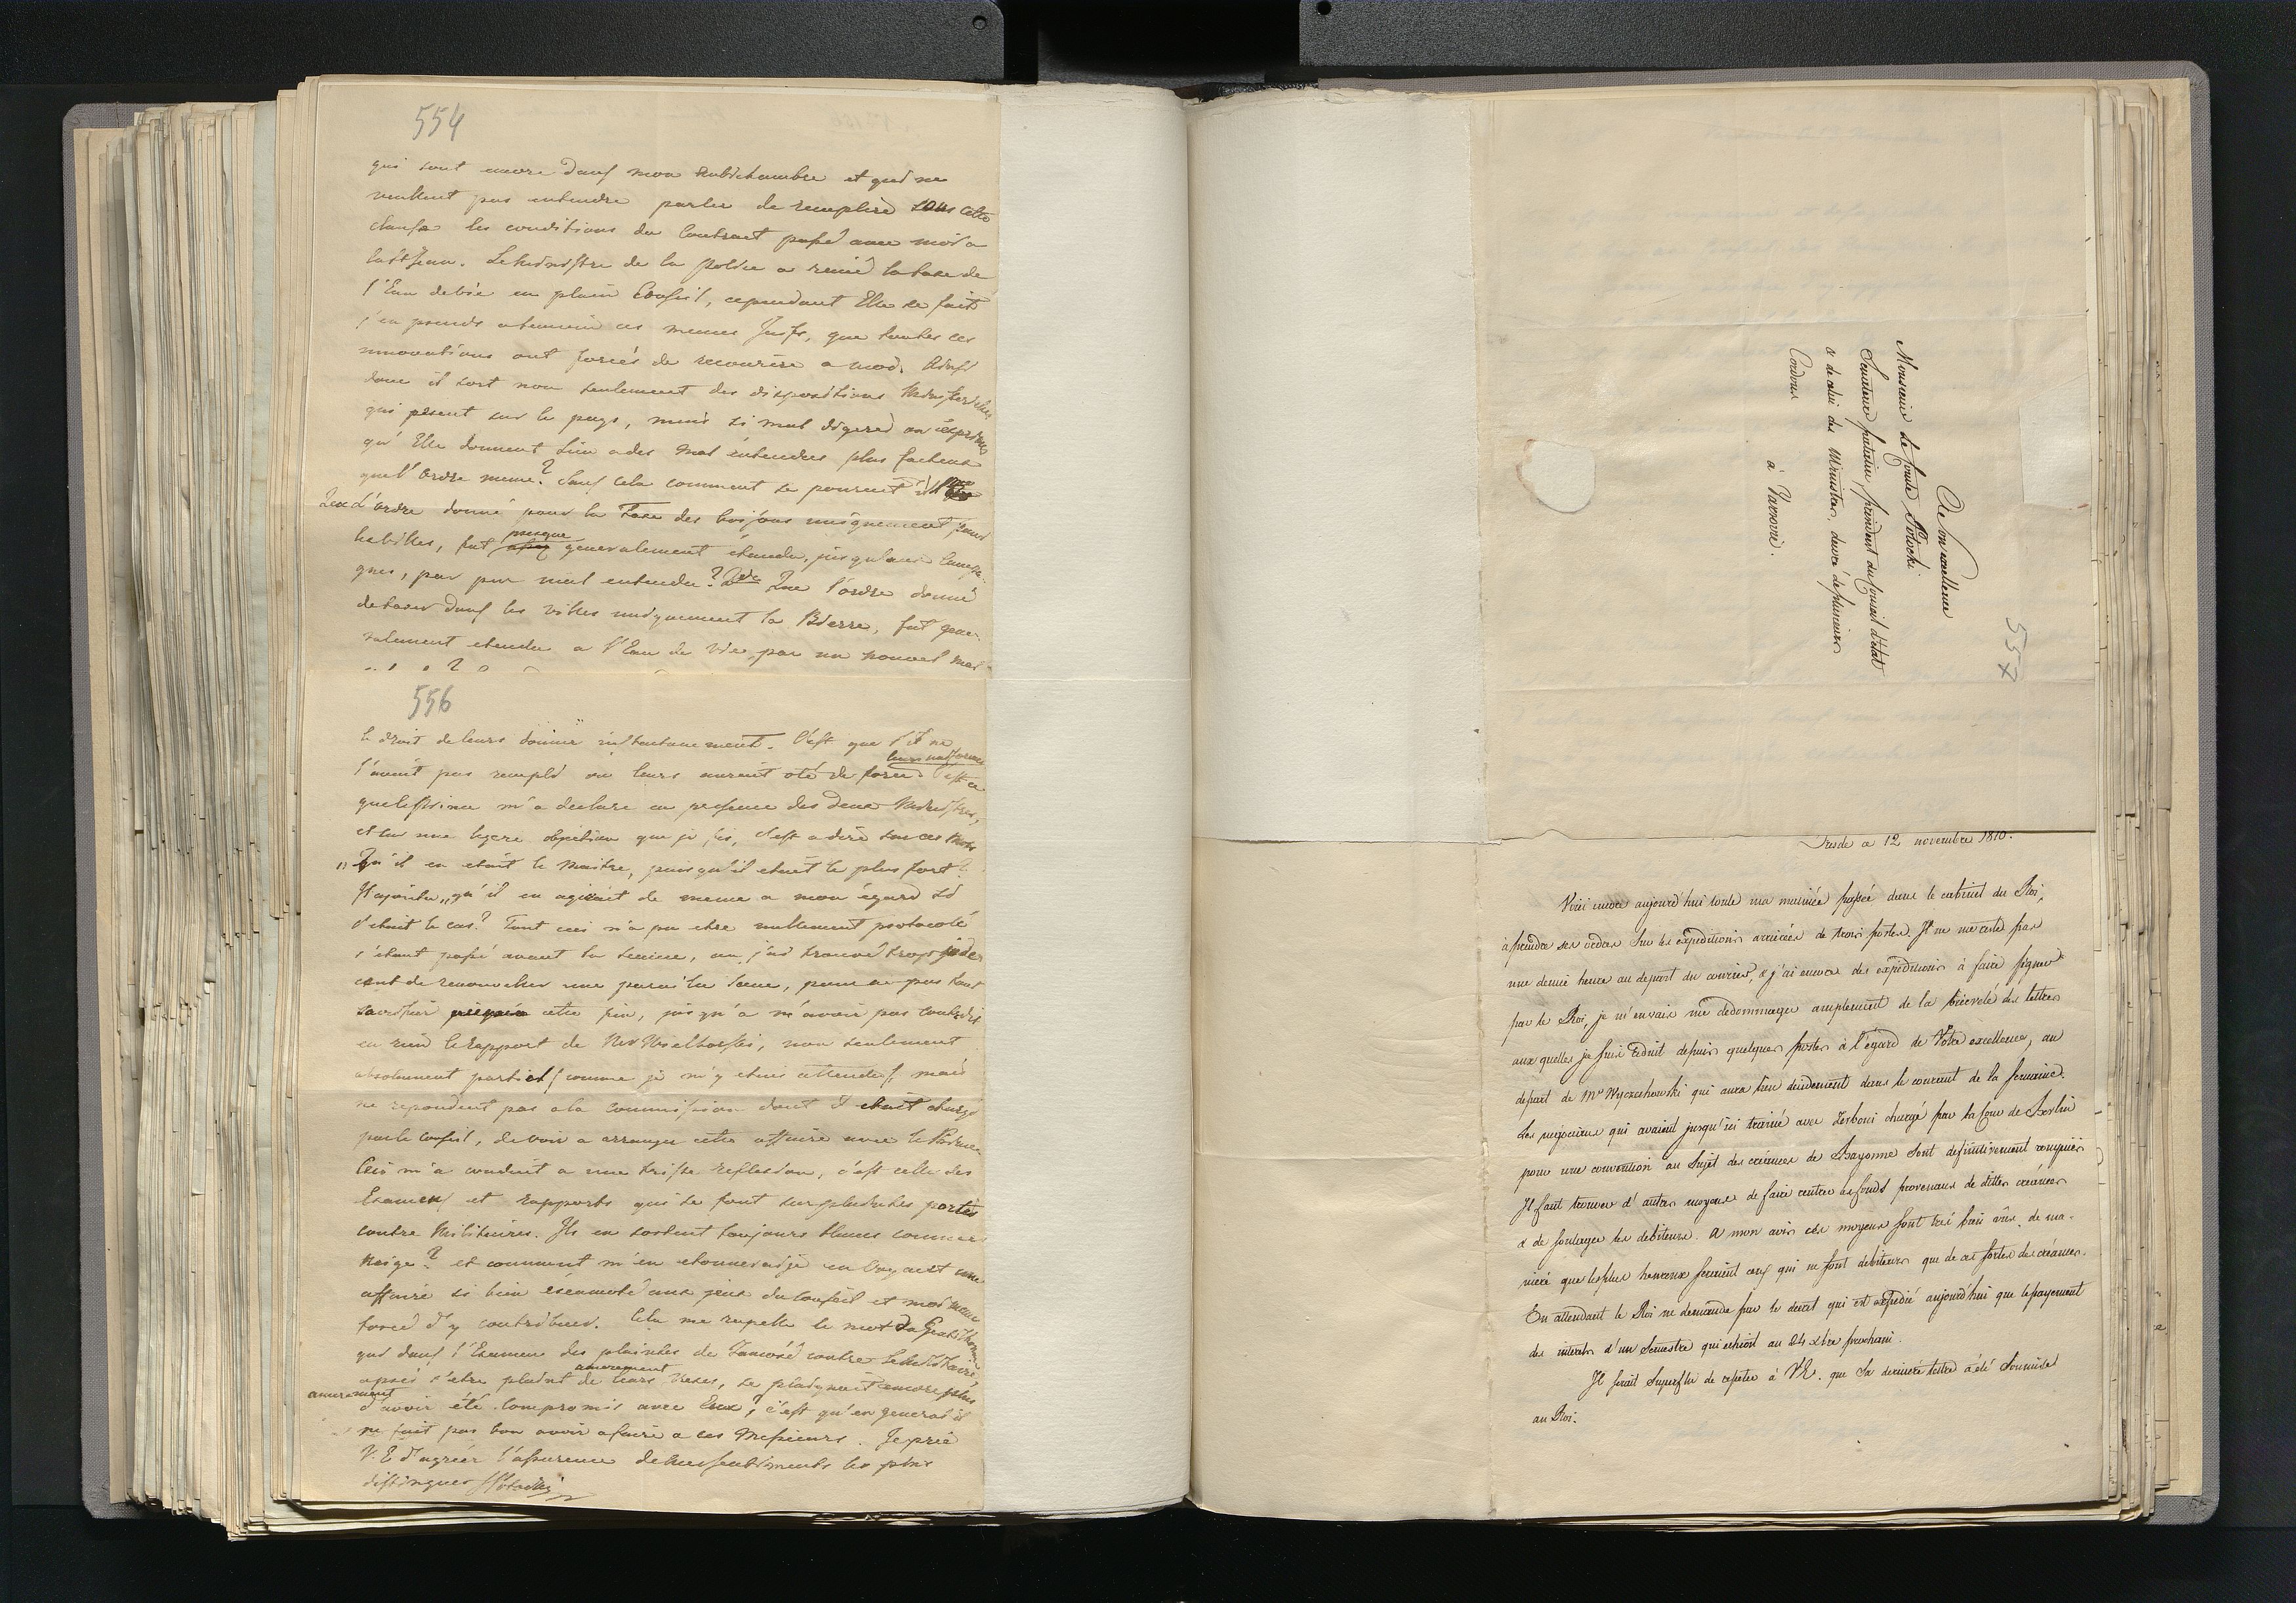 554
qui sont encore dans mon Antichambre et qui ne
veulent pas entendre parler de remplire sous cette
clause les conditions du Contract passé avec moi a
Le Ministre de la police a renié la taxe de
l'Eau de vie en plein Conseil, cependant Elle se fait
j'en prends a temoin ces memes Juifs, que toutes ces
innovations ont forcés de recourire a moi. Ainsi
donc il sort non seulement des dispositions Ministerielles
qui pesent sur le pays, mais si mal digeréd ou exprimés
qu'Elle donnent lieu a des Mal entendus plus facheux
que l'Ordre meme? Sans cela comment se pouroit il
Que l'ordre donné pour la Taxe des boissons uniquement pour
les villes, fut presque generalement étendu, jusqu'aux Campa-
gnes, par un mal entendu? Que l'ordre donné
de taxer dans les villes uniquement la Bierre, fut gene-
ralement etendu a l'Eau de Vie, par un nouvel mal
556
le droit de leurs donner instantanement. C'est que s'il ne
l'avoit pas rempli on leurs auroit oté de force leurs uniformes C'est ce
que le Prince m'a declaré en presence des deux Ministres,
et sur une legere objection que je fis, c'est a dire sur ces Mots
"Qu'il en etoit le Maitre, puisqu'il etoit le plus fort?
Il ajouta, qu'il en agiroit de meme a mon égard si
c'etoit le cas? Tout ceci n'a pu etre nullement protocolé
s'etant passé avant la seance, ou j'ai trouvé trop inde-
cent de renouveller une pareille scene, pour ne pas tout
sacrifier cette fin, jusqu'a n'avoir pas contredit
en rien le rapport de Mr Wielhorski, non seulement
absolument partiel (comme je m'y etois attendu), mais
ne repondent pas a la commission dont il etoit chargé
par le Conseil, de voir a arranger cette affaire avec le Prince
Ceci m'a conduit a une triste reflection, c'est celle des
Examens et rapports qui se font sur plaintes portés
contre Militaires. Ils en sortent toujours blancs comme
Neige? et comment m'en etonnerai je en voyant une
affaire si bien escamoté aux yeux du Conseil et moi meme
forcé d'y contribuer. Cela me rapelle le mot de
qui dans l'Examen des plaintes de Zamość contre le Militaire,
apres s'etre plaint amerement de leurs Vexes, se plaignoit encore plus
amerement
d'avoir été compromis avec Eux?, c'est qu'en general il
ne fait pas bon avoir afaire a ces Messieurs. Je prie
V. E d'agréer l'assurence de mes sentiments les plus
distingues SPotocki
557
A Son excellence
Monsieur le Comte Potocki
Senateur palatin, president du Conseil d'etat
& de celui des Ministres, decoré de plusieurs
Cordons
à Varsovie.
Dresde a 12 novembre 1810.
Voici encore aujourd'hui toute ma matinée passée dans le cabinet du Roi,
à prendre ses ordres sur les expeditions arrivées de trois postes. Il ne me reste pas
une demie heure au depart du courier, & j'ai encore des expéditions à faire signer
par le Roi, je m'envais me dedommager amplement de la brieveté des lettres
aux quelles je suis reduit depuis quelques postes à l'égard de Votre excellence, au
depart de Mr Wyczechowski qui aura lieu decidement dans le courant de la semaine.
Les negociations qui avaient jusqu'ici trainé avec Zerboni chargé par la Cour de Berlin
pour une convention au sujet des creances de Bayonne sont definitivement rompuës
Il faut trouver d'autres moyens de faire rentrer les fonds provenans de dittes créances
& de soulager les debiteurs. A mon avis ces moyens sont tres bien vûs, de ma-
niere que les plus heureux seroient ceux qui ne sont débiteurs que de ces sortes de créances.
En attendant le Roi ne demande par le decret qui est expedié aujourd'hui que le payement
des interets d'un semestre qui echoit au 24 xbre prochain.
Il serait superflu de repeter à V.E. que Sa derniere lettre a été soumise
au Roi.